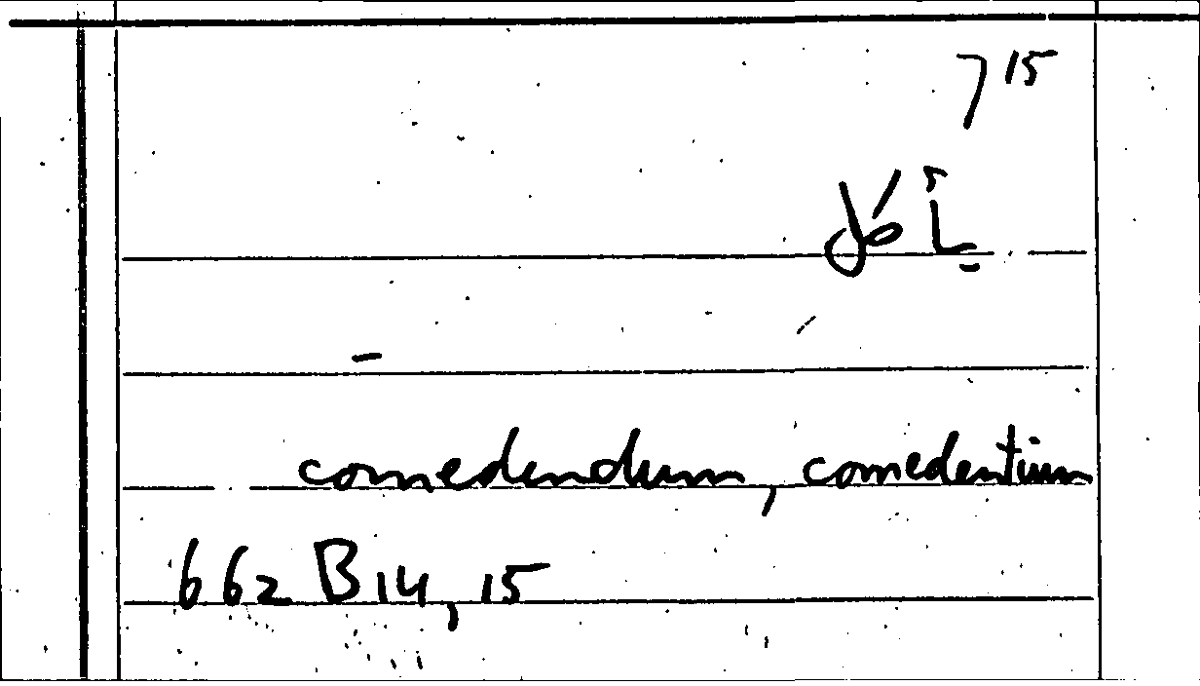 7 15
comedendum, comedentium
662 B 14, 15